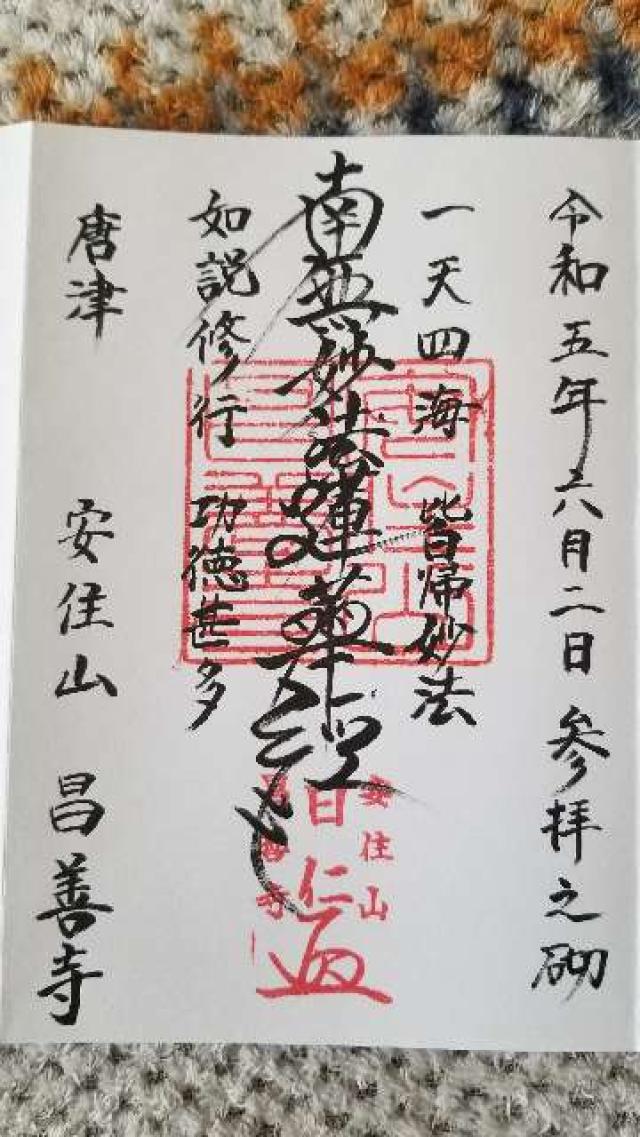 令和五年六月二日 参拝之砌
一天四海 皆帰妙法
南無妙法蓮華経
如説修行 功徳甚多
唐津 安住山 昌善寺
安住山
日仁
昌善寺